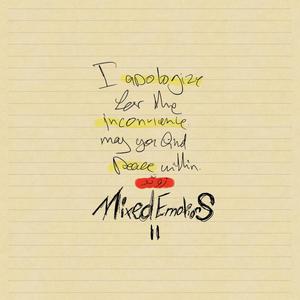 I apologize
for the
inconvniance
may you find
peace within.
Mixed EmotionS
II